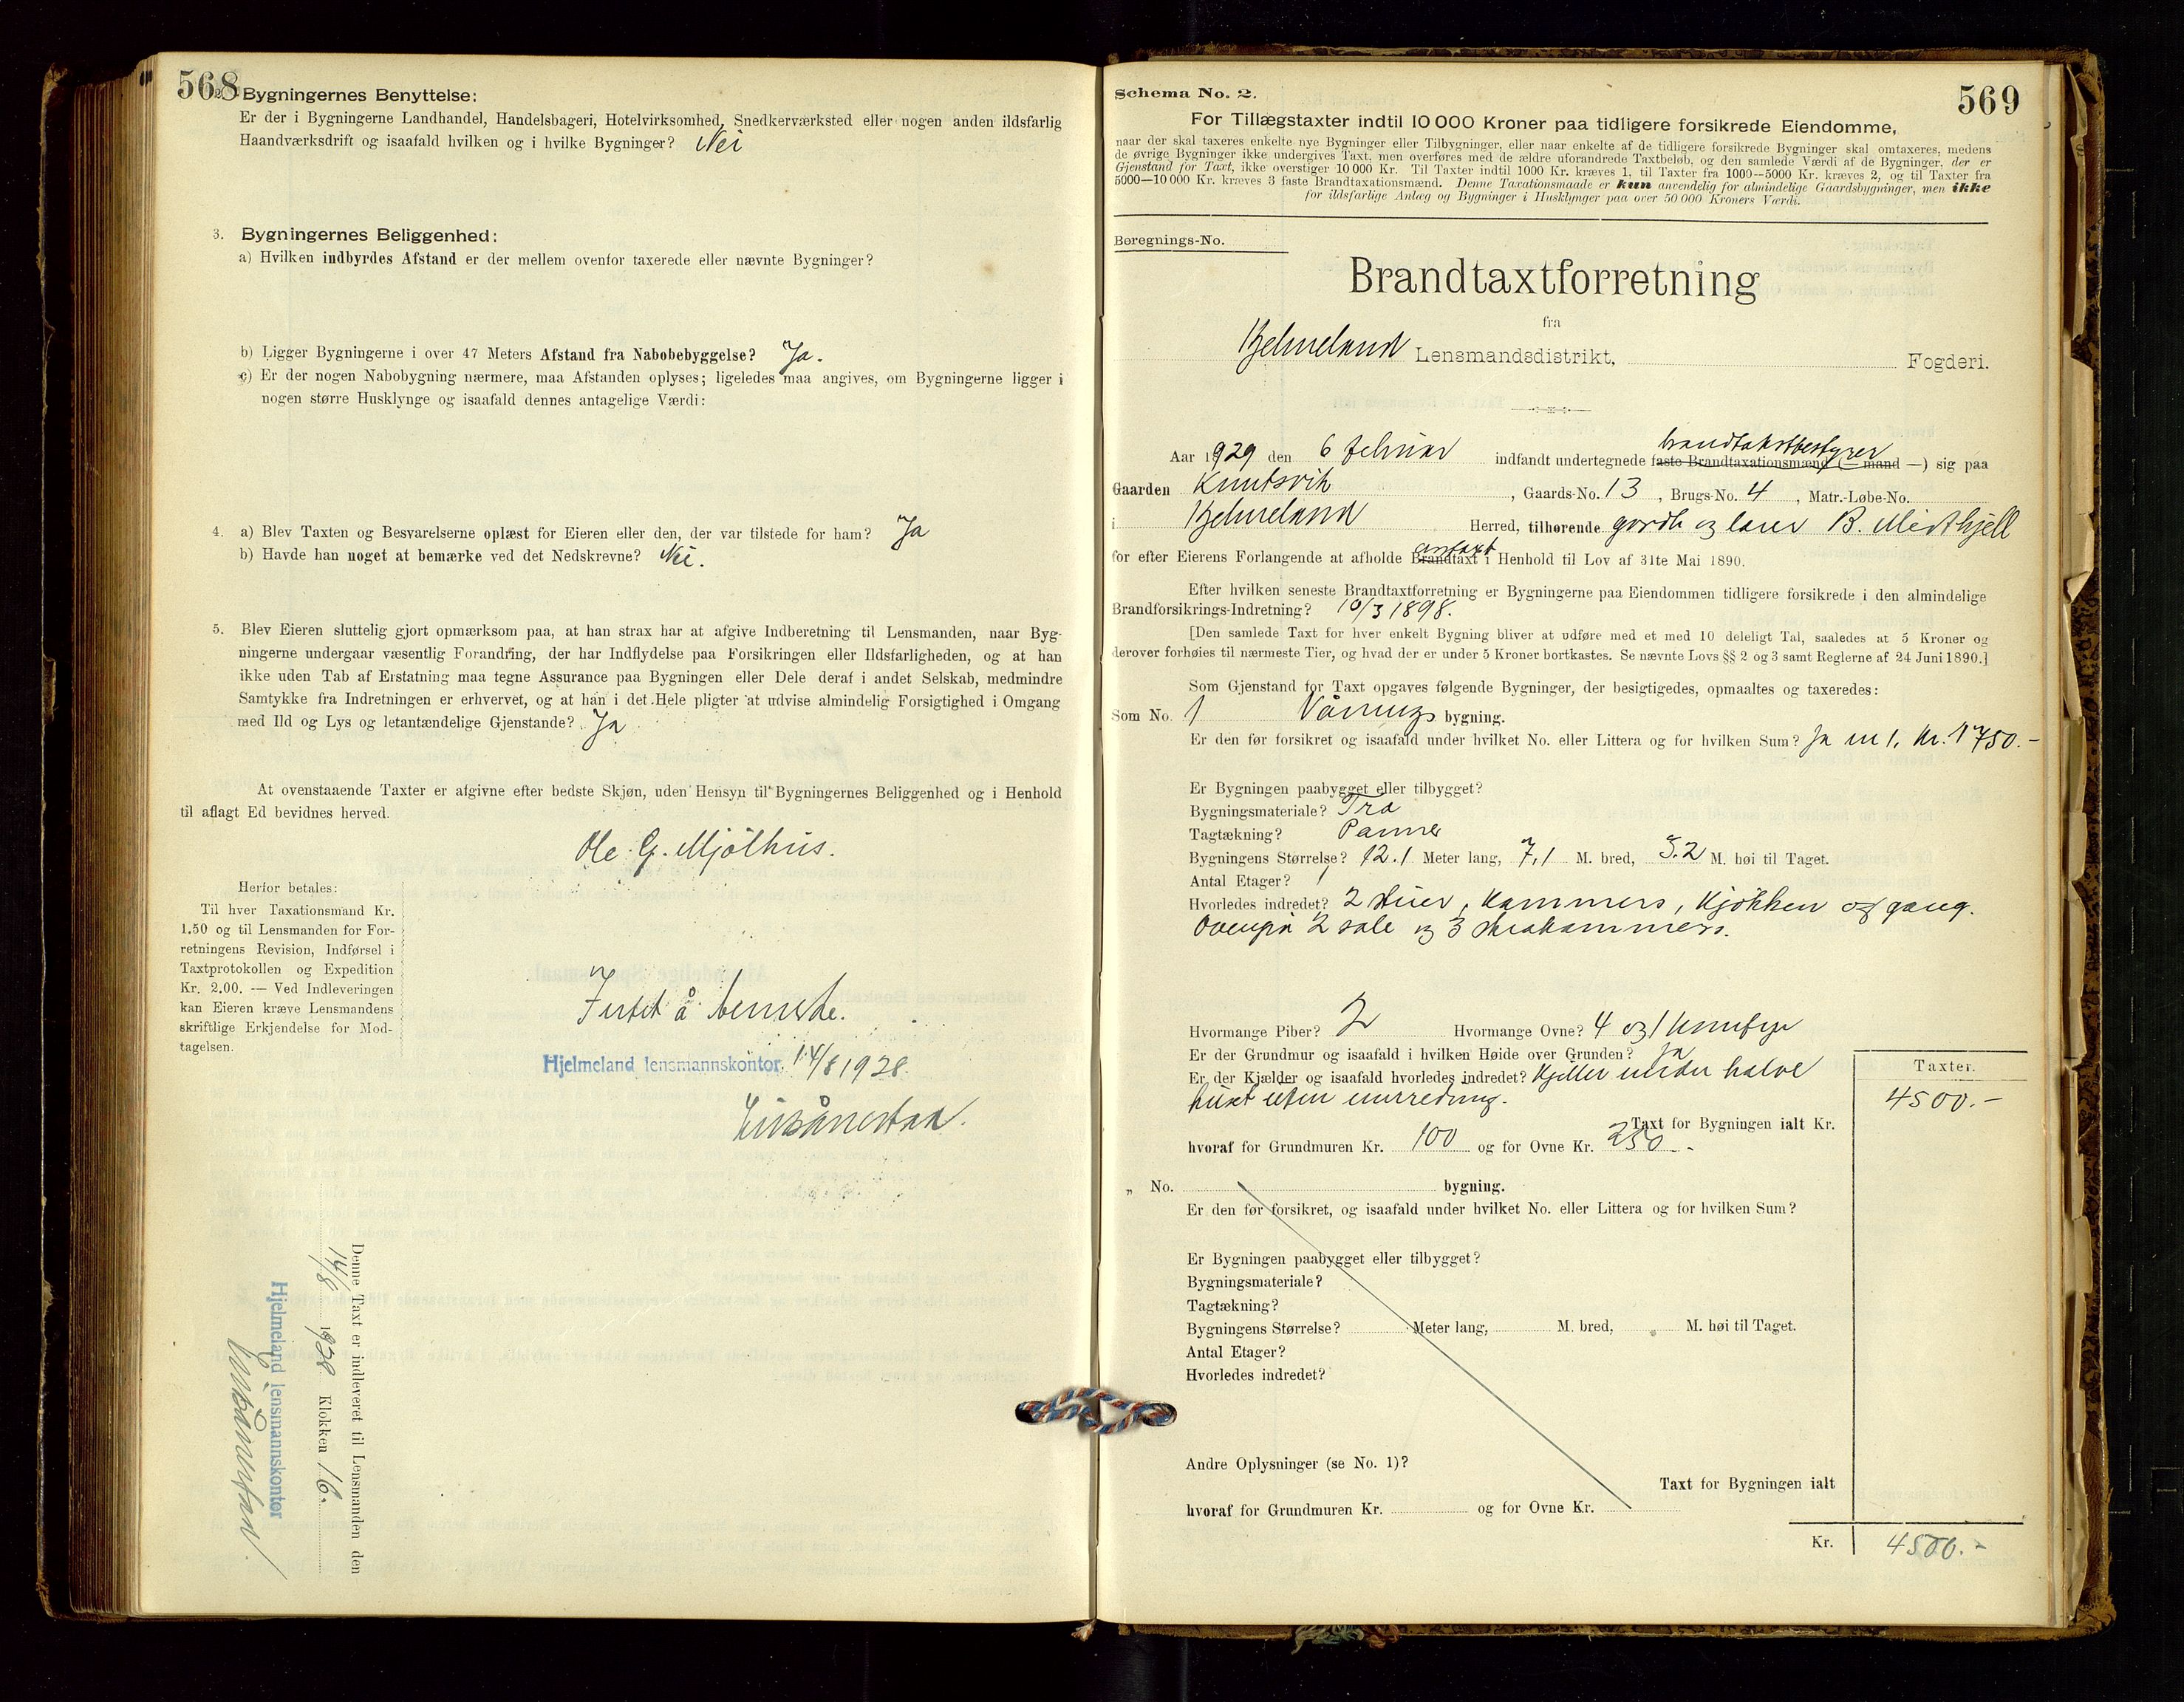 568
2. Bygningernes Benyttelse:
Er der i Bygningerne Landhandel, Handelsbageri, Hotelvirksomhed, Snedkerværksted eller nogen anden ildsfarlig
Haandværksdrift og isaafald hvilken og i hvilke Bygninger? Nei
3. Bygningernes Beliggenhed:
a) Hvilken indbyrdes Afstand er der mellem ovenfor taxerede eller nævnte Bygninger?
b) Ligger Bygningerne i over 47 Meters Afstand fra Nabobebyggelse? Ja.
c) Er der nogen Nabobygning nærmere, maa Afstanden oplyses; ligeledes maa angives, om Bygningerne ligger i
nogen større Husklynge og isaafald dennes antagelige Værdi:
4. a) Blev Taxten og Besvarelserne oplæst for Eieren eller den, der var tilstede for ham? Ja
b) Havde han noget at bemærke ved det Nedskrevne? Nei.
5. Blev Eieren sluttelig gjort opmærksom paa, at han strax har at afgive Indberetning til Lensmanden, naar Byg-
ningerne undergaar væsentlig Forandring, der har Indflydelse paa Forsikringen eller Ildsfarligheden, og at han
ikke uden Tab af Erstatning maa tegne Assurance paa Bygningen eller Dele deraf i andet Selskab, medmindre
Samtykke fra Indretningen er erhvervet, og at han i det Hele pligter at udvise almindelig Forsigtighed i Omgang
med Ild og Lys og letantændelige Gjenstande? Ja
At ovenstaaende Taxter er afgivne efter bedste Skjøn, uden Hensyn til Bygningernes Beliggenhed og i Henhold
til aflagt Ed bevidnes herved.
Ole G. Mjölhus.
Herfor betales:
Til hver Taxationsmand Kr.
1.50 og til Lensmanden for For-
retningens Revision, Indførsel i
Taxtprotokollen og Expedition
Kr. 2.00. — Ved Indleveringen
kan Eieren kræve Lensmandens
skriftlige Erkjendelse for Mod-
tagelsen.
Hjelmeland lensmannskontor, 14/8 1928.
Denne Taxt er indleveret til Lensmanden den
14/8 1928 Klokken 16.
Hjelmeland lensmannskontor
569
Schema No. 2.
For Tillægstaxter indtil 10 000 Kroner paa tidligere forsikrede Eiendomme,
naar der skal taxeres enkelte nye Bygninger eller Tilbygninger, eller naar enkelte af de tidligere forsikrede Bygninger skal omtaxeres, medens
de øvrige Bygninger ikke undergives Taxt, men overføres med de ældre uforandrede Taxtbeløb, og den samlede Værdi af de Bygninger, der er
Gjenstand for Taxt, ikke overstiger 10 000 Kr. Til Taxter indtil 1000 Kr. kræves 1, til Taxter fra 1000—5000 Kr. kræves 2, og til Taxter fra
5000—10 000 Kr. kræves 3 faste Brandtaxationsmænd. Denne Taxationsmaade er kun anvendelig for almindelige Gaardsbygninger, men ikke
for ildsfarlige Anlæg og Bygninger i Husklynger paa over 50 000 Kroners Værdi.
Beregnings-No.
Brandtaxtforretning
fra
Hjelmeland Lensmandsdistrikt, Fogderi.
brandtakstbestyrer
Aar 1929 den 6 februar indfandt undertegnede faste Brandtaxationsmænd (— mand —) sig paa
Gaarden Knutsvik, Gaards-No. 13, Brugs-No. 4, Matr.-Løbe-No.
i Hjelmeland Herred, tilhørende gardb og lærer B. Midthjell
for efter Eierens Forlangende at afholde Brandtaxt i Henhold til Lov af 31te Mai 1890.
Efter hvilken seneste Brandtaxtforretning er Bygningerne paa Eiendommen tidligere forsikrede i den almindelige
Brandforsikrings-Indretning? 10/3 1898.
[Den samlede Taxt for hver enkelt Bygning bliver at udføre med et med 10 deleligt Tal, saaledes at 5 Kroner og
derover forhøies til nærmeste Tier, og hvad der er under 5 Kroner bortkastes. Se nævnte Lovs §§ 2 og 3 samt Reglerne af 24 Juni 1890.]
Som Gjenstand for Taxt opgaves følgende Bygninger, der besigtigedes, opmaaltes og taxeredes:
Som No. 1 Vånings bygning.
Er den før forsikret og isaafald under hvilket No. eller Littera og for hvilken Sum? Ja m 1. Kr. 1750.-
Er Bygningen paabygget eller tilbygget?
Bygningsmateriale? Tra
Tagtækning? Panner
Bygningens Størrelse? 12.1 Meter lang, 7,1 M. bred, 5.2 M. høi til Taget.
Antal Etager? 1
Hvorledes indredet? 2 stuer, kammers, kjökken og gang.
Ovenpå 2 sale og 3 skrakammers.
Hvormange Piber? 2 Hvormange Ovne? 4 og 1 komfyr
Er der Grundmur og isaafald i hvilken Høide over Grunden? Ja
Er der Kjælder og isaafald hvorledes indredet? Kjeller under halve
huset uten innredning.
Taxter.
4500.-
Taxt for Bygningen ialt Kr.
hvoraf for Grundmuren Kr. 100 og for Ovne Kr. 250.-
„ No. bygning.
Er den før forsikret, og isaafald under hvilket No. eller Littera og for hvilken Sum?
Er Bygningen paabygget eller tilbygget?
Bygningsmateriale?
Tagtækning?
Bygningens Størrelse? Meter lang, M. bred, M. høi til Taget.
Antal Etager?
Hvorledes indredet?
Andre Oplysninger (se No. 1)?
Taxt for Bygningen ialt
hvoraf for Grundmuren Kr. og for Ovne Kr.
Kr. 4500.-